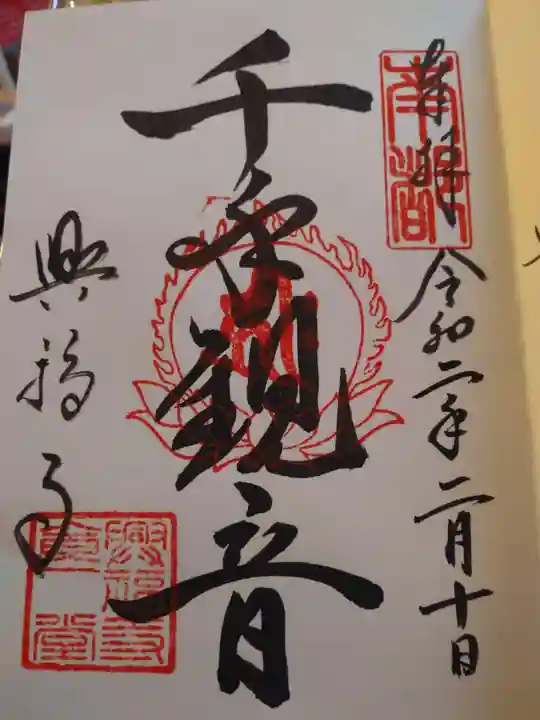 奉拝 令和二年二月十日
南都
千手観音
興福寺
興福寺食堂